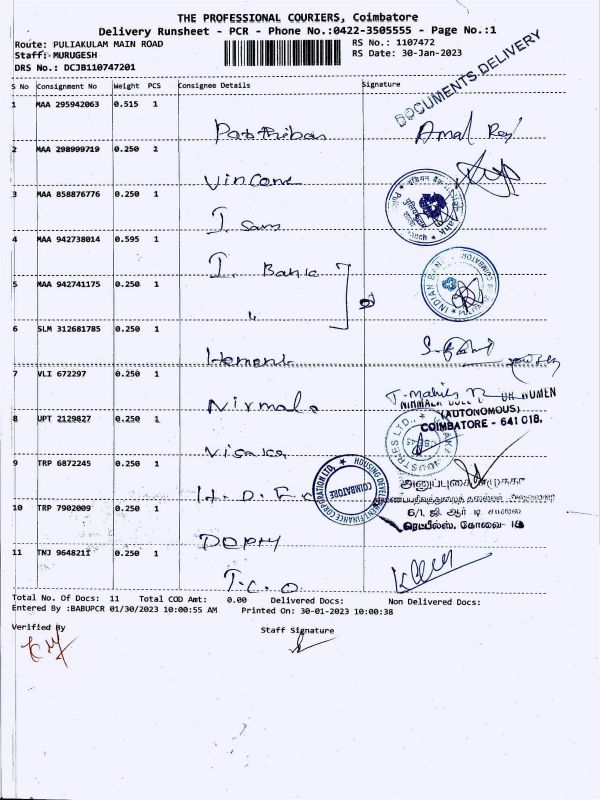 THE PROFESSIONAL COURIERS, Coimbatore
Delivery Runsheet - PCR - Phone No.:0422-3505555 - Page No.:1
Route: PULIAKULAM MAIN ROAD
RS No.: 1107472
Staff: MURUGESH
RS Date: 30-Jan-2023
DRS No.: DCJB110747201
DOCUMENTS DELIVERY
S No Consignment No Weight PCS Consignee Details Signature
1 MAA 295942063 0.515 1
Amal Roy
2 MAA 298999719 0.250 1
Vincent
3 MAA 858876776 0.250 1
I. Sam
4 MAA 942738014 0.595 1
I. Bank
INDIAN BANK COIMBATORE
5 MAA 942741175 0.250 1
"
6 SLM 312681785 0.250 1
Hement
7 VLI 672297 0.250 1
Nirmala
WOMEN
(AUTONOMOUS)
COIMBATORE - 641 018.
8 UPT 2129827 0.250 1
9 TRP 6872245 0.250 1
H. D. F.
HOUSING DEVELOPMENT FINANCE CORPORATION LTD. COIMBATORE
10 TRP 7902009 0.250 1
6/1, ஜி. ஆர் டி சாலை
கோவை- 18
11 TNJ 964821 0.250 1
Total No. Of Docs: 11 Total COD Amt: 0.00 Delivered Docs: Non Delivered Docs:
Entered By :BABUPCR 01/30/2023 10:00:55 AM Printed On: 30-01-2023 10:00:38
Verified By
Staff Signature